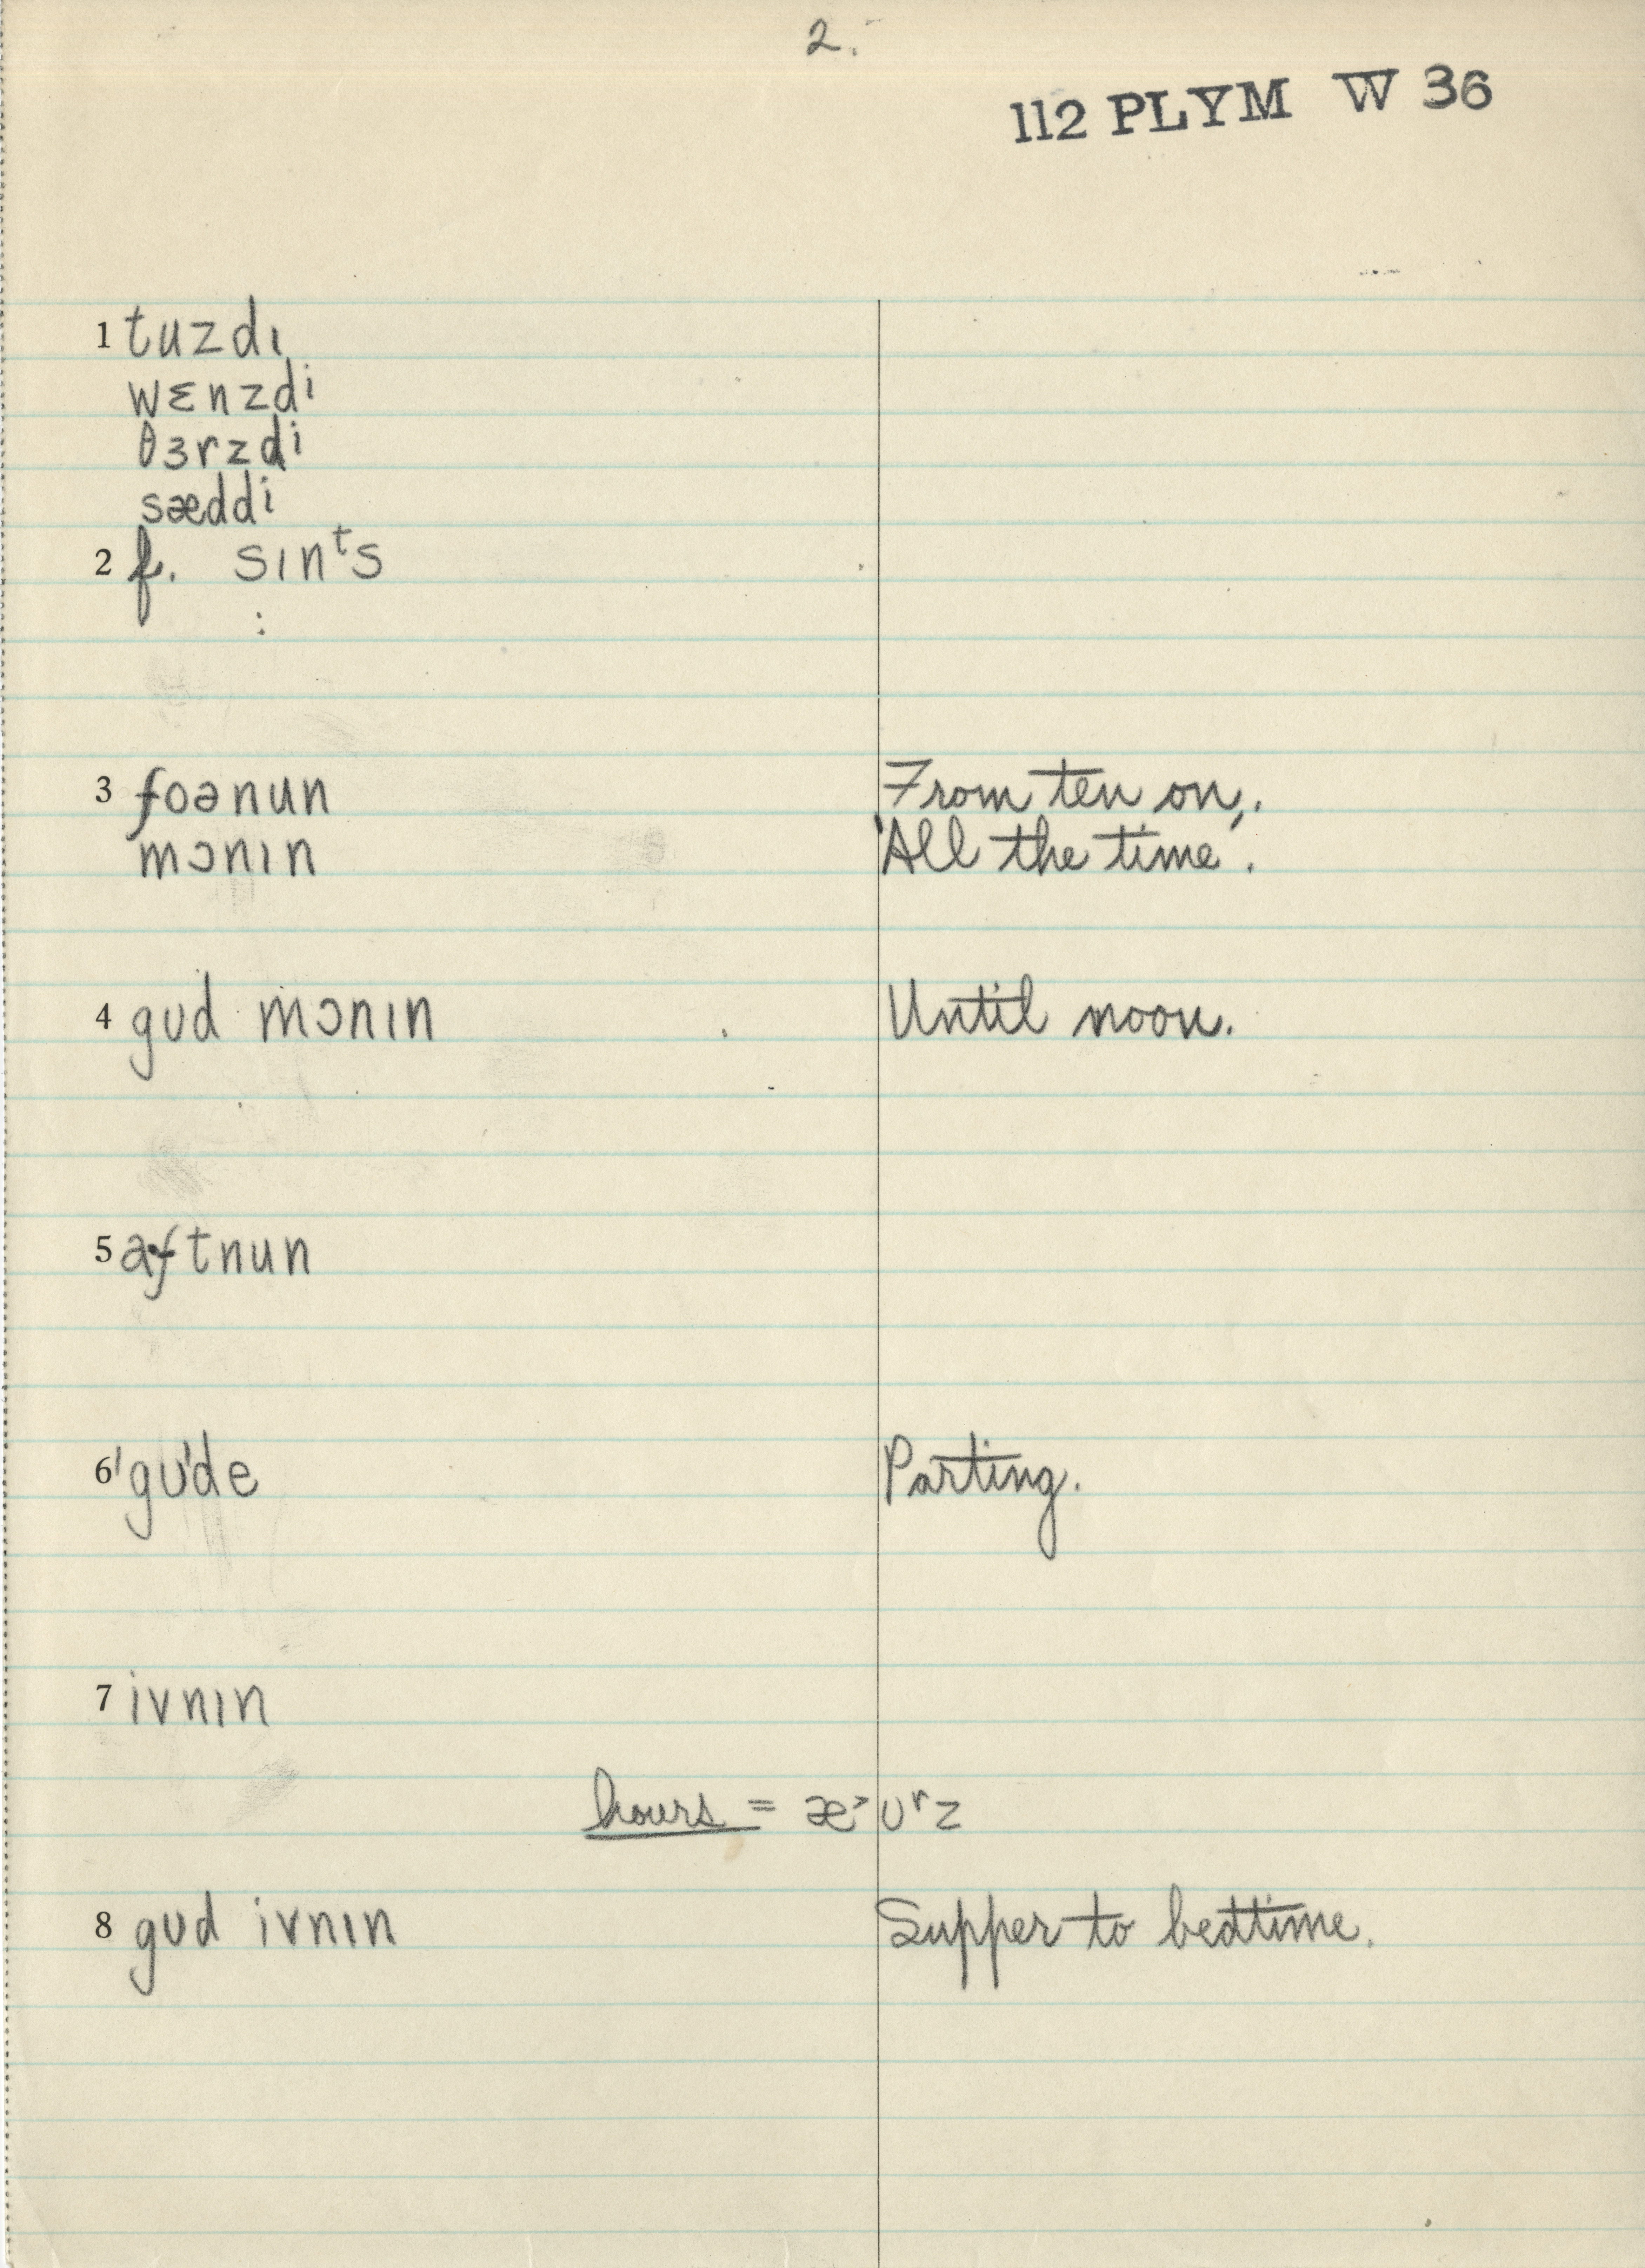 2.
112 PLYM W 36
1 tuzdɪ
wɛnzdi
θɜrzdi
sæddi
2 f. sɪnᵗs
3 foənun From ten on,.
mɔnɪn 'All the time'.
4 gʊd mɔnɪn Until noon.
5 aftnun
6 'gʊ'de Parting.
7 ivnɪn
hours = æ˃ʊʳz
8 gʊd ivnɪn Supper to bedtime.